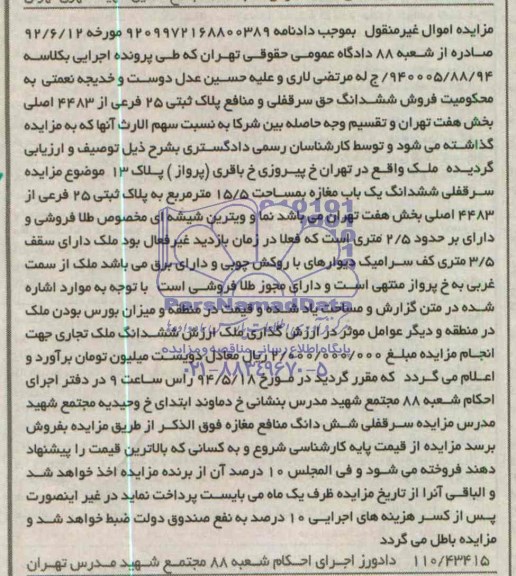 مزایده اموال غیرمنقول بموجب دادنامه ۹۲۰۹۹۷۲۱۶۸۸۰۰۳۸۹ مورخه ۹۲/۶/۱۲
صادره از شعبه ۸۸ دادگاه عمومی حقوقی تهران که طی پرونده اجرایی بکلاسه
۹۴۰۰۰۵/۸۸/۹۴/ ج له مرتضی لاری و علیه حسین عدل دوست و خدیجه نعمتی به
محکومیت فروش ششدانگ حق سرقفلی و منافع پلاک ثبتی ۲۵ فرعی از ۴۴۸۳ اصلی
بخش هفت تهران و تقسیم وجه حاصله بین شرکا به نسبت سهم الارث آنها که به مزایده
گذاشته می شود و توسط کارشناسان رسمی دادگستری بشرح ذیل توصیف و ارزیابی
گردیده ملک واقع در تهران خ پیروزی خ باقری (پرواز) پلاک ۱۳ موضوع مزایده
سرقفلی ششدانگ یک باب مغازه بمساحت ۱۵/۵ مترمربع به پلاک ثبتی ۲۵ فرعی از
۴۴۸۳ اصلی بخش هفت تهران می باشد نما و ویترین شیشه ای مخصوص طلا فروشی و
دارای بر حدود ۲/۵ متری است که فعلا در زمان بازدید غیرفعال بود ملک دارای سقف
۳/۵ متری کف سرامیک دیوارهای با روکش چوبی و دارای برق می باشد ملک از سمت
غربی به خ پرواز منتهی است و دارای مجوز طلا فروشی است با توجه به موارد اشاره
شده در متن گزارش و مساحت یاد شده و قیمت در منطقه و میزان بورس بودن ملک
در منطقه و دیگر عوامل موثر در ارزش گذاری ملک ارزش ششدانگ ملک تجاری جهت
انجام مزایده مبلغ ۲/۰۰۰/۰۰۰/۰۰۰ ریال معادل دویست میلیون تومان برآورد و
اعلام می گردد که مقرر گردید در مورخ ۹۴/۵/۱۸ راس ساعت ۹ در دفتر اجرای
احکام شعبه ۸۸ مجتمع شهید مدرس بنشانی خ دماوند ابتدای خ وحیدیه مجتمع شهید
مدرس مزایده سرقفلی شش دانگ منافع مغازه فوق الذکر از طریق مزایده بفروش
برسد مزایده از قیمت پایه کارشناسی شروع و به کسانی که بالاترین قیمت را پیشنهاد
دهند فروخته می شود و فی المجلس ۱۰ درصد آن از برنده مزایده اخذ خواهد شد
و الباقی آنرا از تاریخ مزایده ظرف یک ماه می بایست پرداخت نماید در غیر اینصورت
پس از کسر هزینه های اجرایی ۱۰ درصد به نفع صندوق دولت ضبط خواهد شد و
مزایده باطل می گردد
۱۱۰/۴۳۴۱۵ دادورز اجرای احکام شعبه ۸۸ مجتمع شهید مدرس تهران
ParsNamadData
پایگاه اطلاع رسانی مناقصه و مزایده
۰۲۱-۸۸۳۴۹۶۷۰-۵